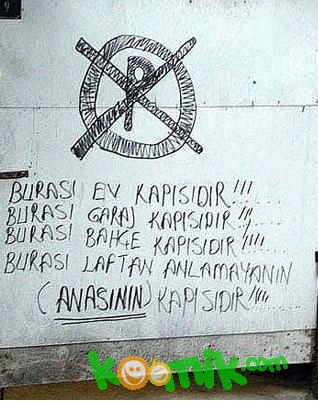 9
P
BURASI EV KAPISIDIR!!!...
BURASI GARAJ KAPISIDIR!!!.....
BURASI BAHÇE KAPISIDIR!!!!....
BURASI LAFTAN ANLAMAYANIN
(ANASININ) KAPISIDIR!!!!....
komik.com